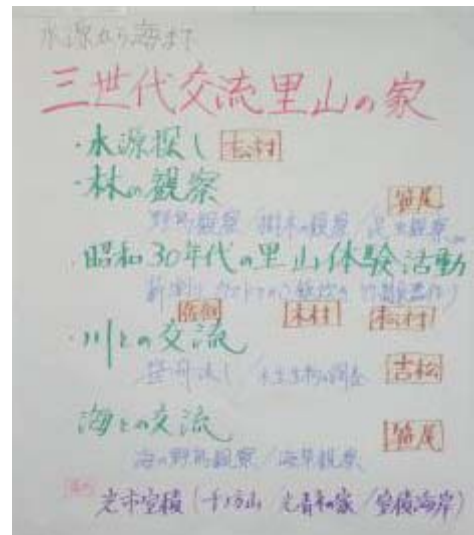 水源から海まで
三世代交流里山の家
・水源探し 松村
・林の観察 笹尾
野鳥観察/樹木の観察/昆虫観察
・昭和30年代の里山体験活動
佐伯 木村 松村
・川との交流
笹舟流し/水生生物の調査 吉松
海との交流 笹尾
海の野鳥観察/海草観察
光市室積(千坊山 光青年の家/室積海岸)